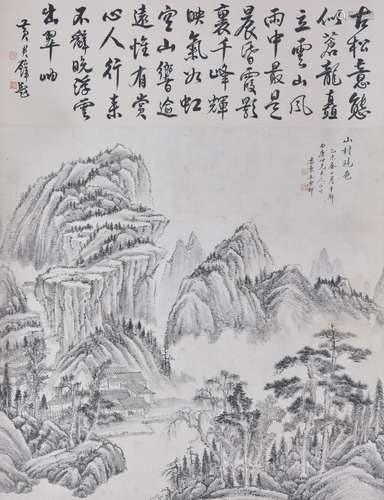 古松意態
似蒼龍矗
立雲山風
雨中最是
晨昏霞影
裏千峰輝
映氣如虹
空山響逾
遠惟有賞
心人行來
不辭晚浮雲
出翠岫
黃君璧題
山村晚色